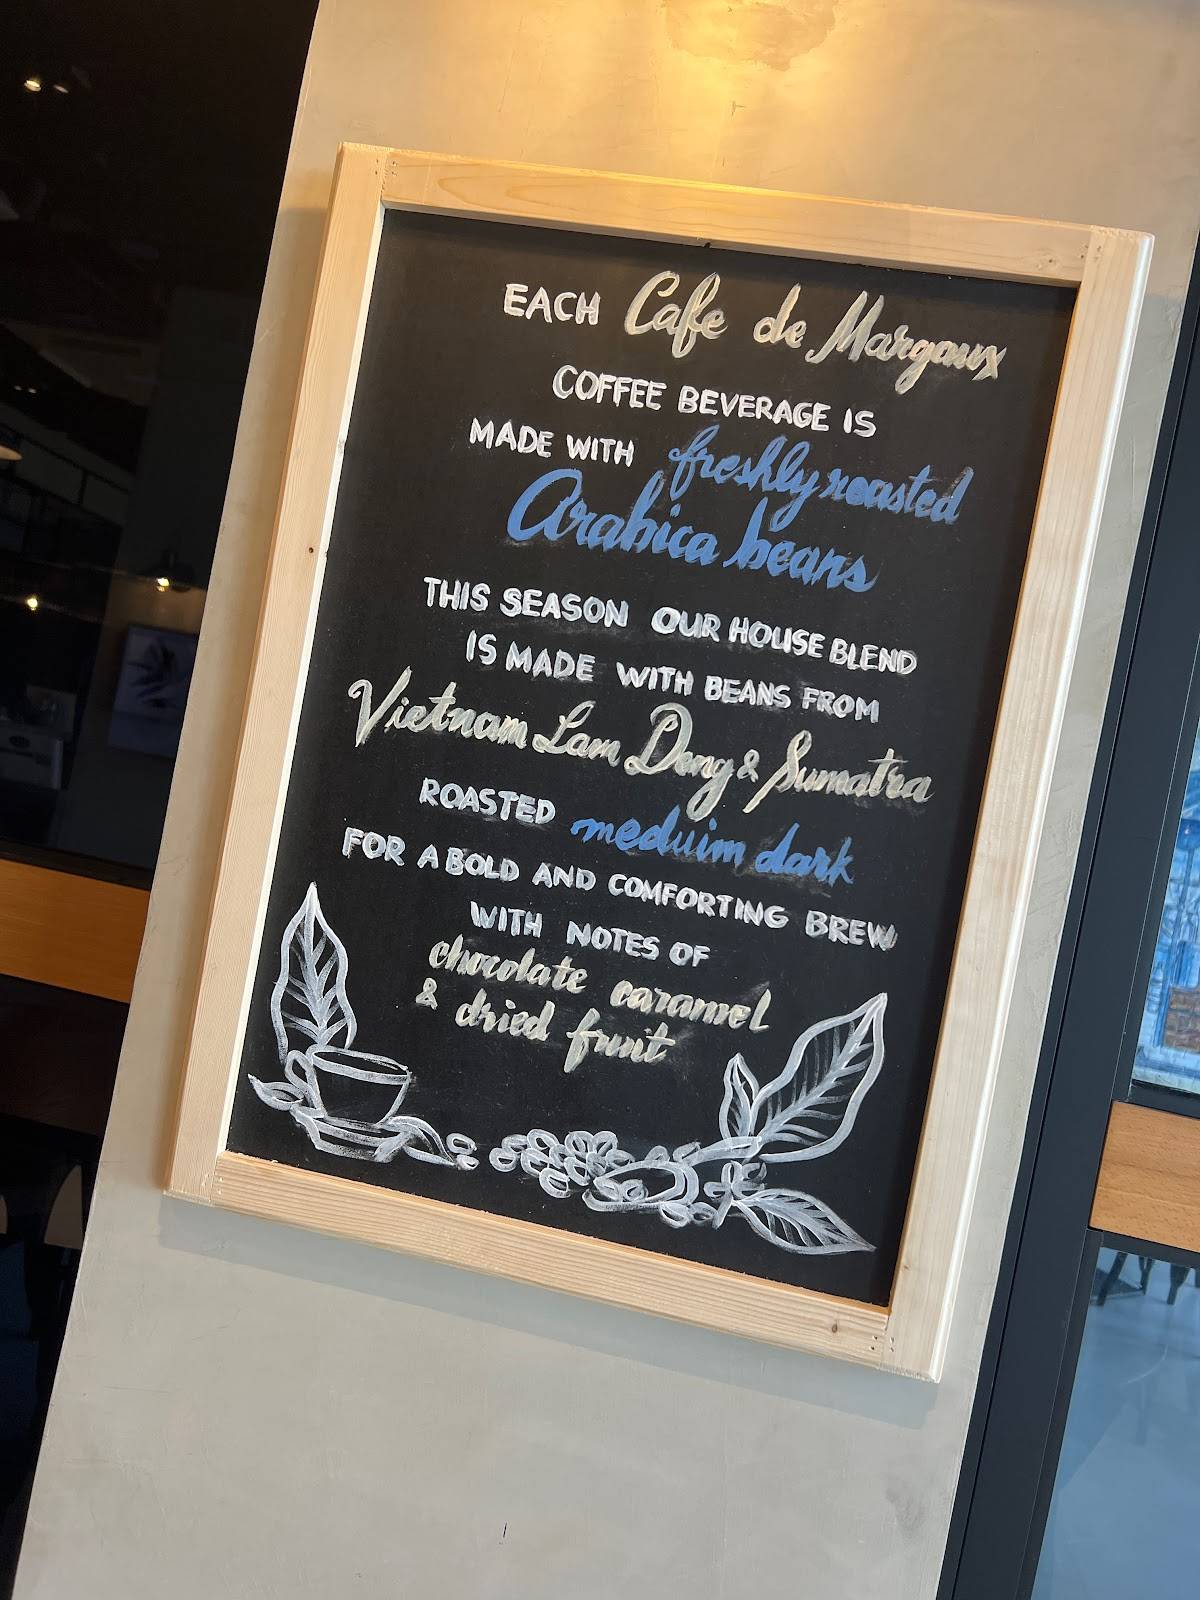 EACH Cafe de Margaux
COFFEE BEVERAGE IS
MADE WITH freshly roasted
Arabica beans
THIS SEASON OUR HOUSE BLEND
IS MADE WITH BEANS FROM
Vietnam Lam Dong & Sumatra
ROASTED meduim dark
FOR A BOLD AND COMFORTING BREW
WITH NOTES OF
chocolate caramel
& dried fruit